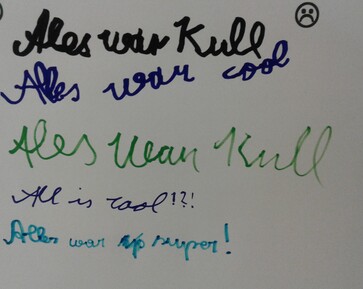 Ales war Kull
Alles war cool
Ales war Kull
All is cool?!!
Alles war super!